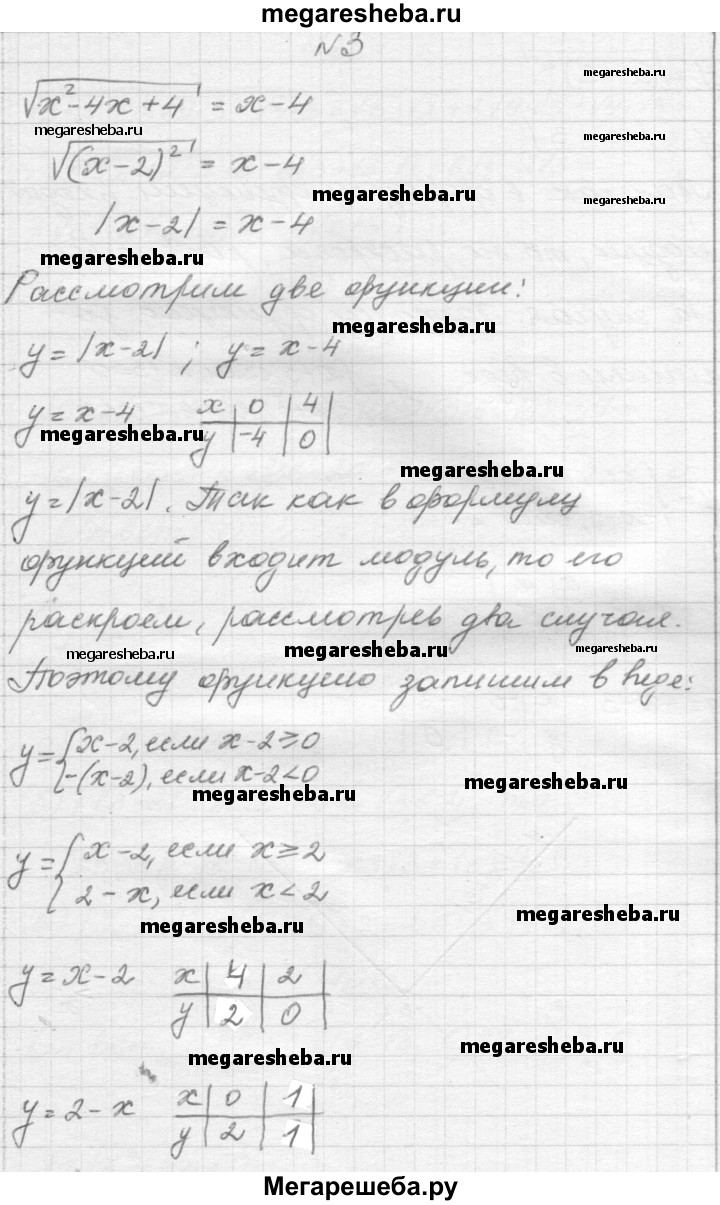 megaresheba.ru
№3
megaresheba.ru
√x²-4x+4 = x-4
megaresheba.ru
√(x-2)² = x-4
megaresheba.ru
megaresheba.ru
|x-2| = x-4
megaresheba.ru
Рассмотрим две функции:
megaresheba.ru
y=|x-2| ; y= x-4
y= x-4 x 0 4
megaresheba.ru
y -4 0
megaresheba.ru
y=|x-2|. Так как в формулу
функций входит модуль, то его
раскроем, рассмотрев два случая.
megaresheba.ru megaresheba.ru megaresheba.ru
Поэтому функцию запишем в виде:
y={x-2, если x-2≥0
-(x-2), если x-2<0
megaresheba.ru
megaresheba.ru
y={x-2, если x≥2
2-x, если x<2
megaresheba.ru
megaresheba.ru
y=x-2 x 4 2
y 2 0
megaresheba.ru
megaresheba.ru
y=2-x x 0 1
y 2 1
Мегарешеба.ру